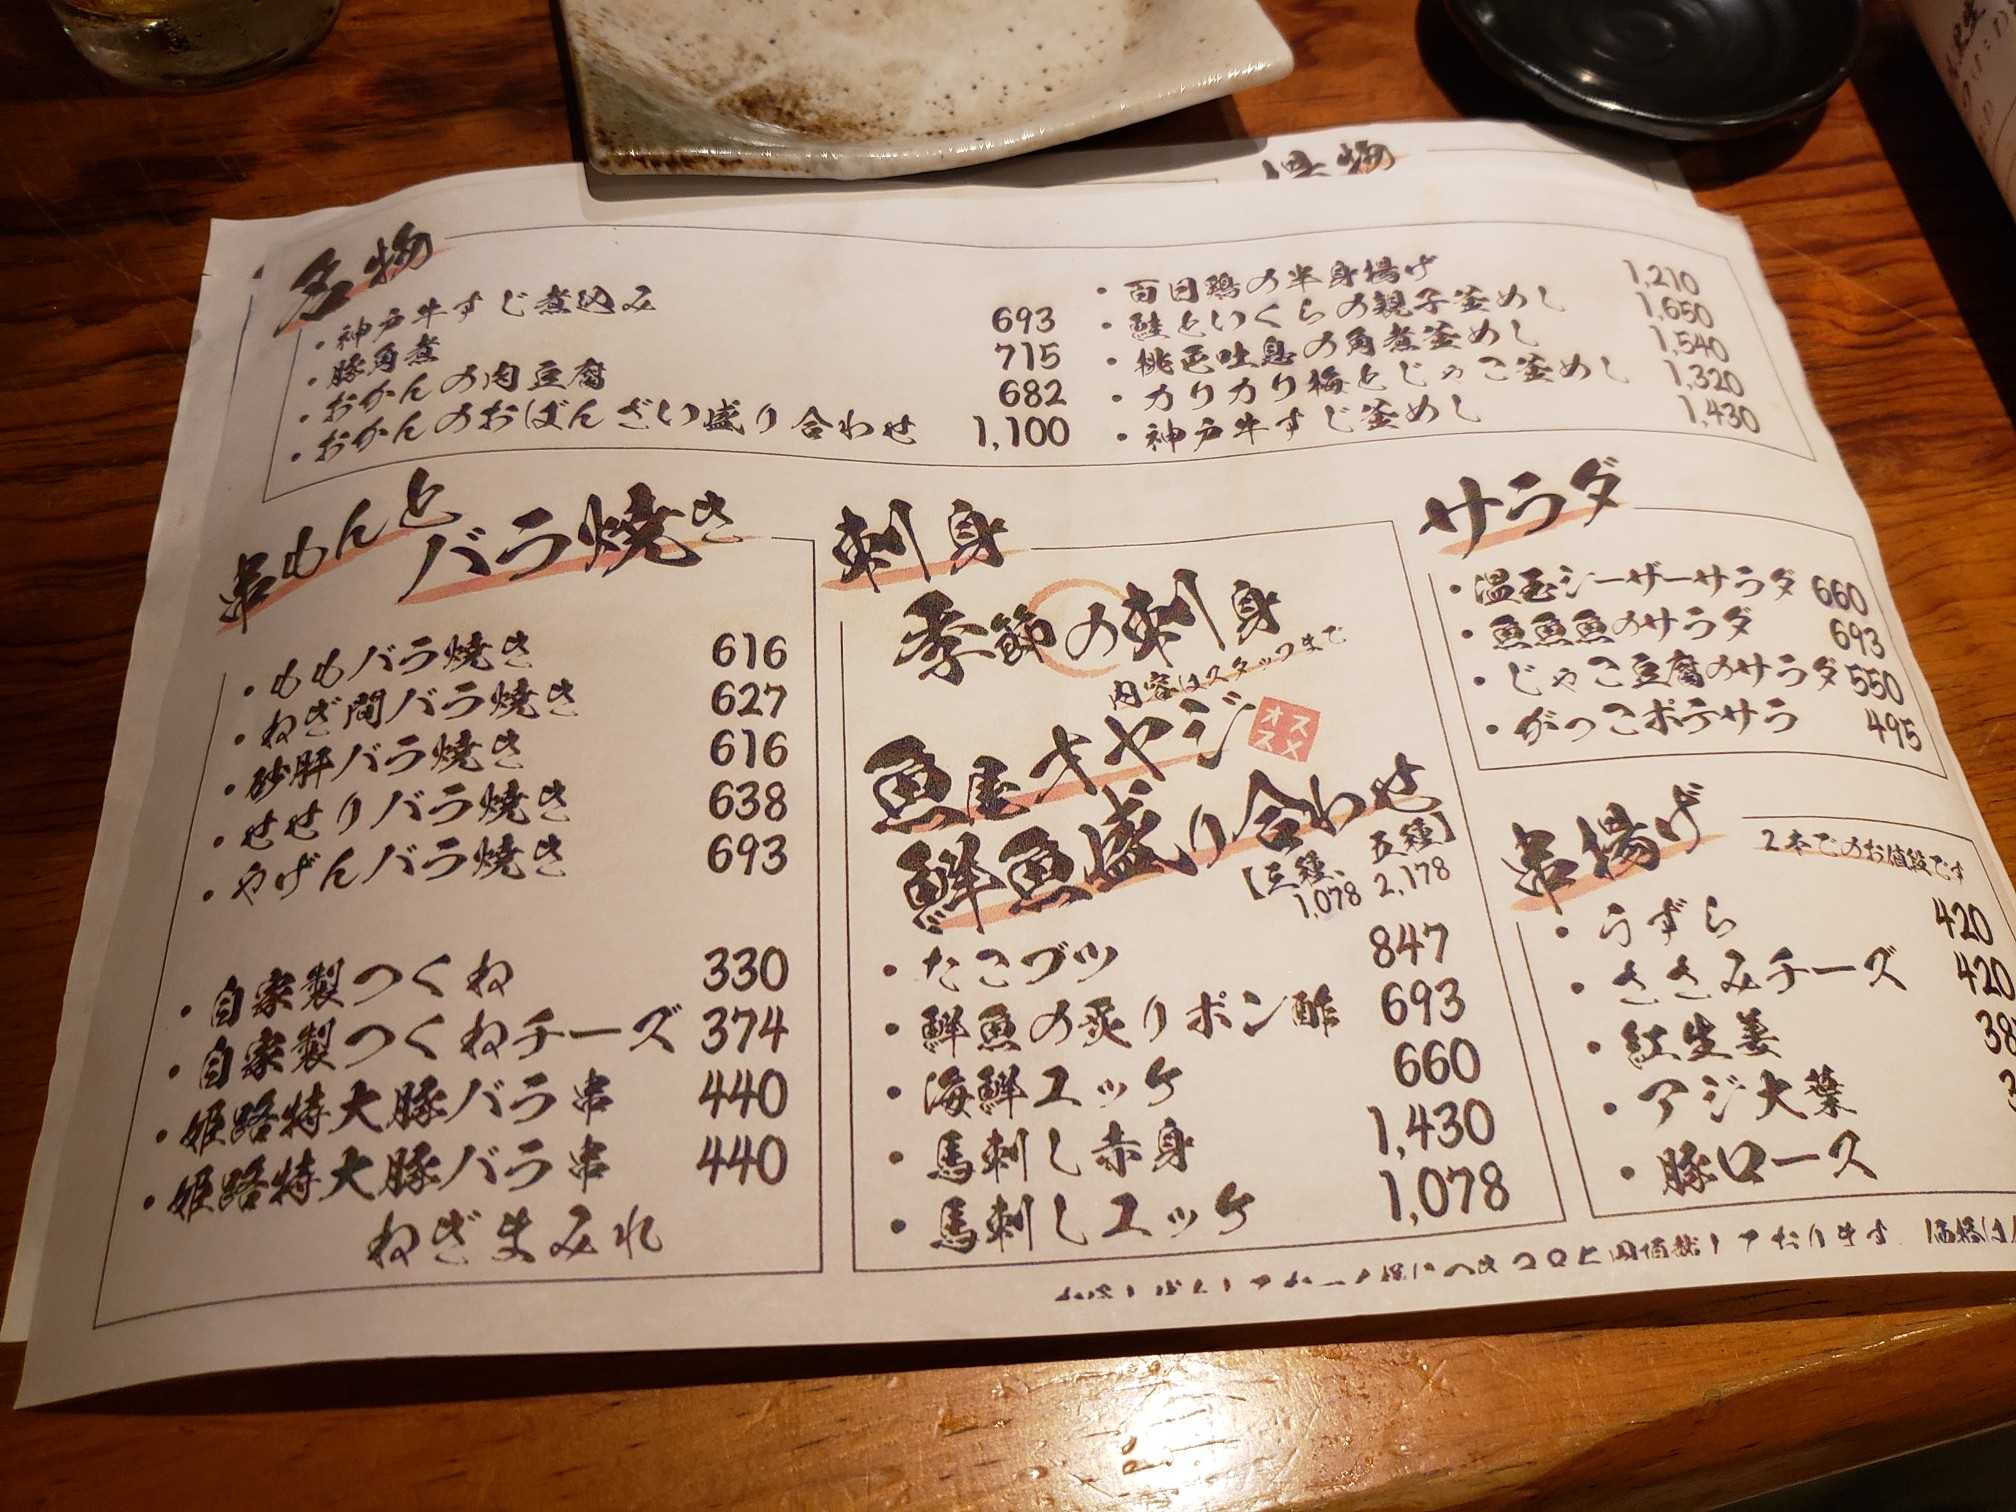 名物
・神戸牛すじ煮込み 693
・豚角煮 715
・おかんの肉豆腐 682
・おかんのおばんざい盛り合わせ 1,100
・百日鶏の半身揚げ 1,210
・鮭といくらの親子釜めし 1,650
・桃色吐息の角煮釜めし 1,540
・カリカリ梅とじゃこ釜めし 1,320
・神戸牛すじ釜めし 1,430
串もんと
バラ焼き
・ももバラ焼き 616
・ねぎ間バラ焼き 627
・砂肝バラ焼き 616
・せせりバラ焼き 638
・やげんバラ焼き 693
・自家製つくね 330
・自家製つくねチーズ 374
・姫路特大豚バラ串 440
・姫路特大豚バラ串 440
ねぎまみれ
刺身
季節の刺身
内容はスタッフまで
魚屋オヤジ
オススメ
鮮魚盛り合わせ
【三種、五種】
1,078 2,178
・たこブツ 847
・鮮魚の炙りポン酢 693
・海鮮ユッケ 660
・馬刺し赤身 1,430
・馬刺しユッケ 1,078
サラダ
・温玉シーザーサラダ 660
・魚魚魚のサラダ 693
・じゃこ豆腐のサラダ 550
・がっこポテサラ 495
串揚げ
2本でのお値段です
・うずら 420
・ささみチーズ 420
・紅生姜
・アジ大葉
・豚ロース